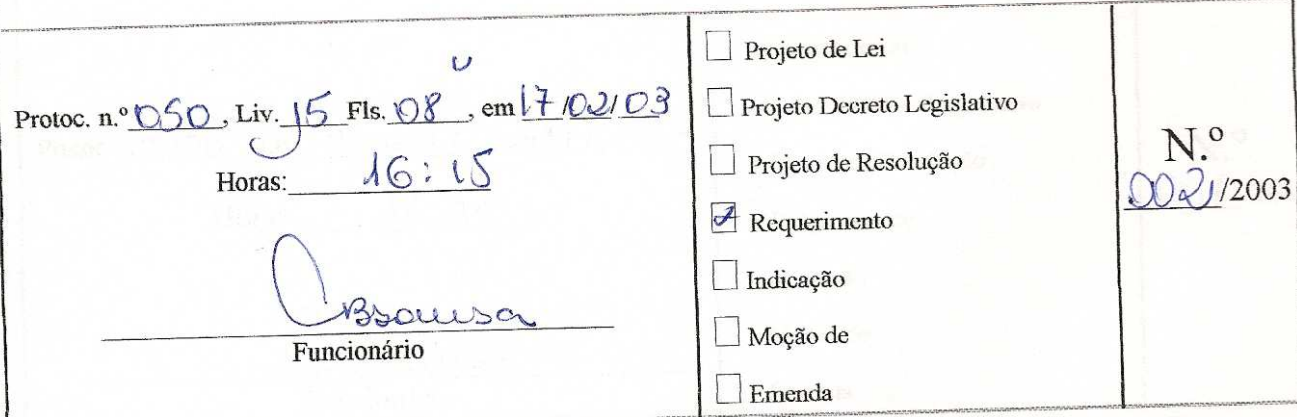 Protoc. n.º 050, Liv. 15 Fls. 08, em 17/02/03
Horas: 16:15
Funcionário
Projeto de Lei
Projeto Decreto Legislativo
Projeto de Resolução
Requerimento
Indicação
Moção de
Emenda
N.º
002/2003